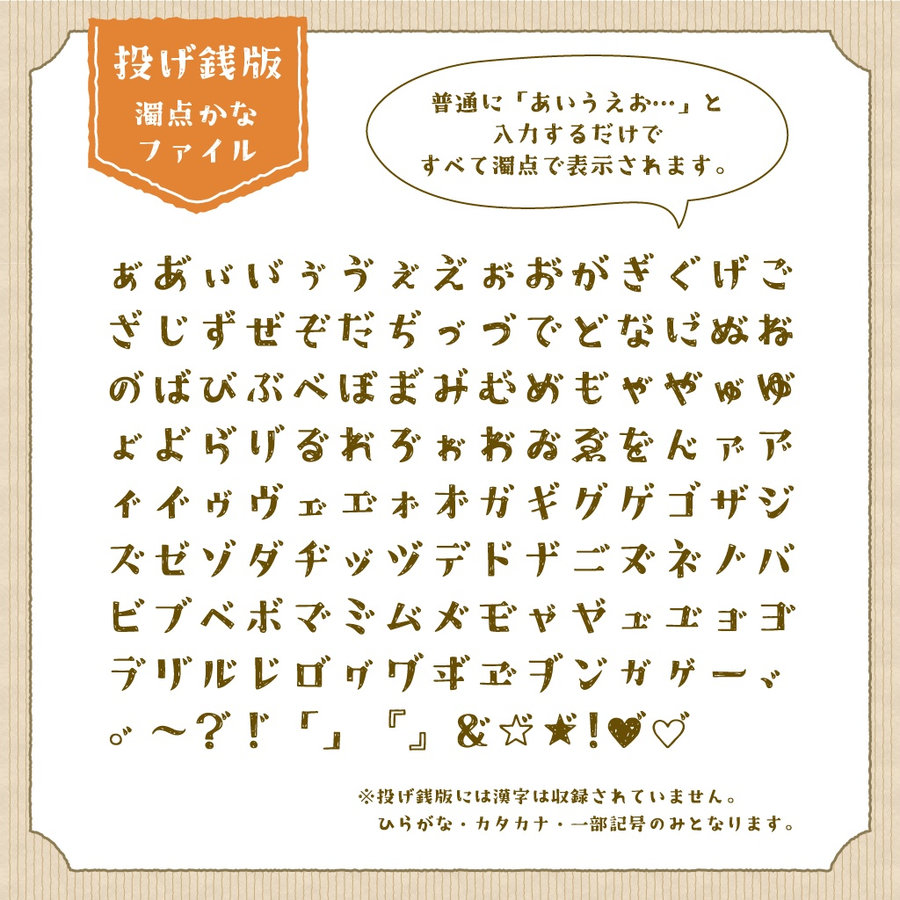 投げ銭版
濁点かな
ファイル
普通に「あいうえお…」と
入力するだけで
すべて濁点で表示されます。
ぁ゙あ゙ぃ゙い゙ぅ゙ゔぇ゙え゙ぉ゙お゙がぎぐげご
ざじずぜぞだぢっ゙づでどな゙に゙ぬ゙ね゙
の゙ばびぶべぼま゙み゙む゙め゙も゙ゃ゙や゙ゅ゙ゆ゙
ょ゙よ゙ら゙り゙る゙れ゙ろ゙ゎ゙わ゙ゐ゙ゑ゙を゙ん゙ァ゙ア゙
ィ゙イ゙ゥ゙ヴェ゙エ゙ォ゙オ゙ガギグゲゴザジ
ズゼゾダヂッ゙ヅデドナ゙ニ゙ヌ゙ネ゙ノ゙バ
ビブベボマ゙ミ゙ム゙メ゙モ゙ャ゙ヤ゙ュ゙ユ゙ョ゙ヨ゙
ラ゙リ゙ル゙レ゙ロ゙ヮ゙ヷヸヹヺン゙ヵ゙ヶ゙ー、゙
。゙～？゙！゙「」『』＆゙☆゙★゙！♥゙♡゙
※投げ銭版には漢字は収録されていません。
ひらがな・カタカナ・一部記号のみとなります。